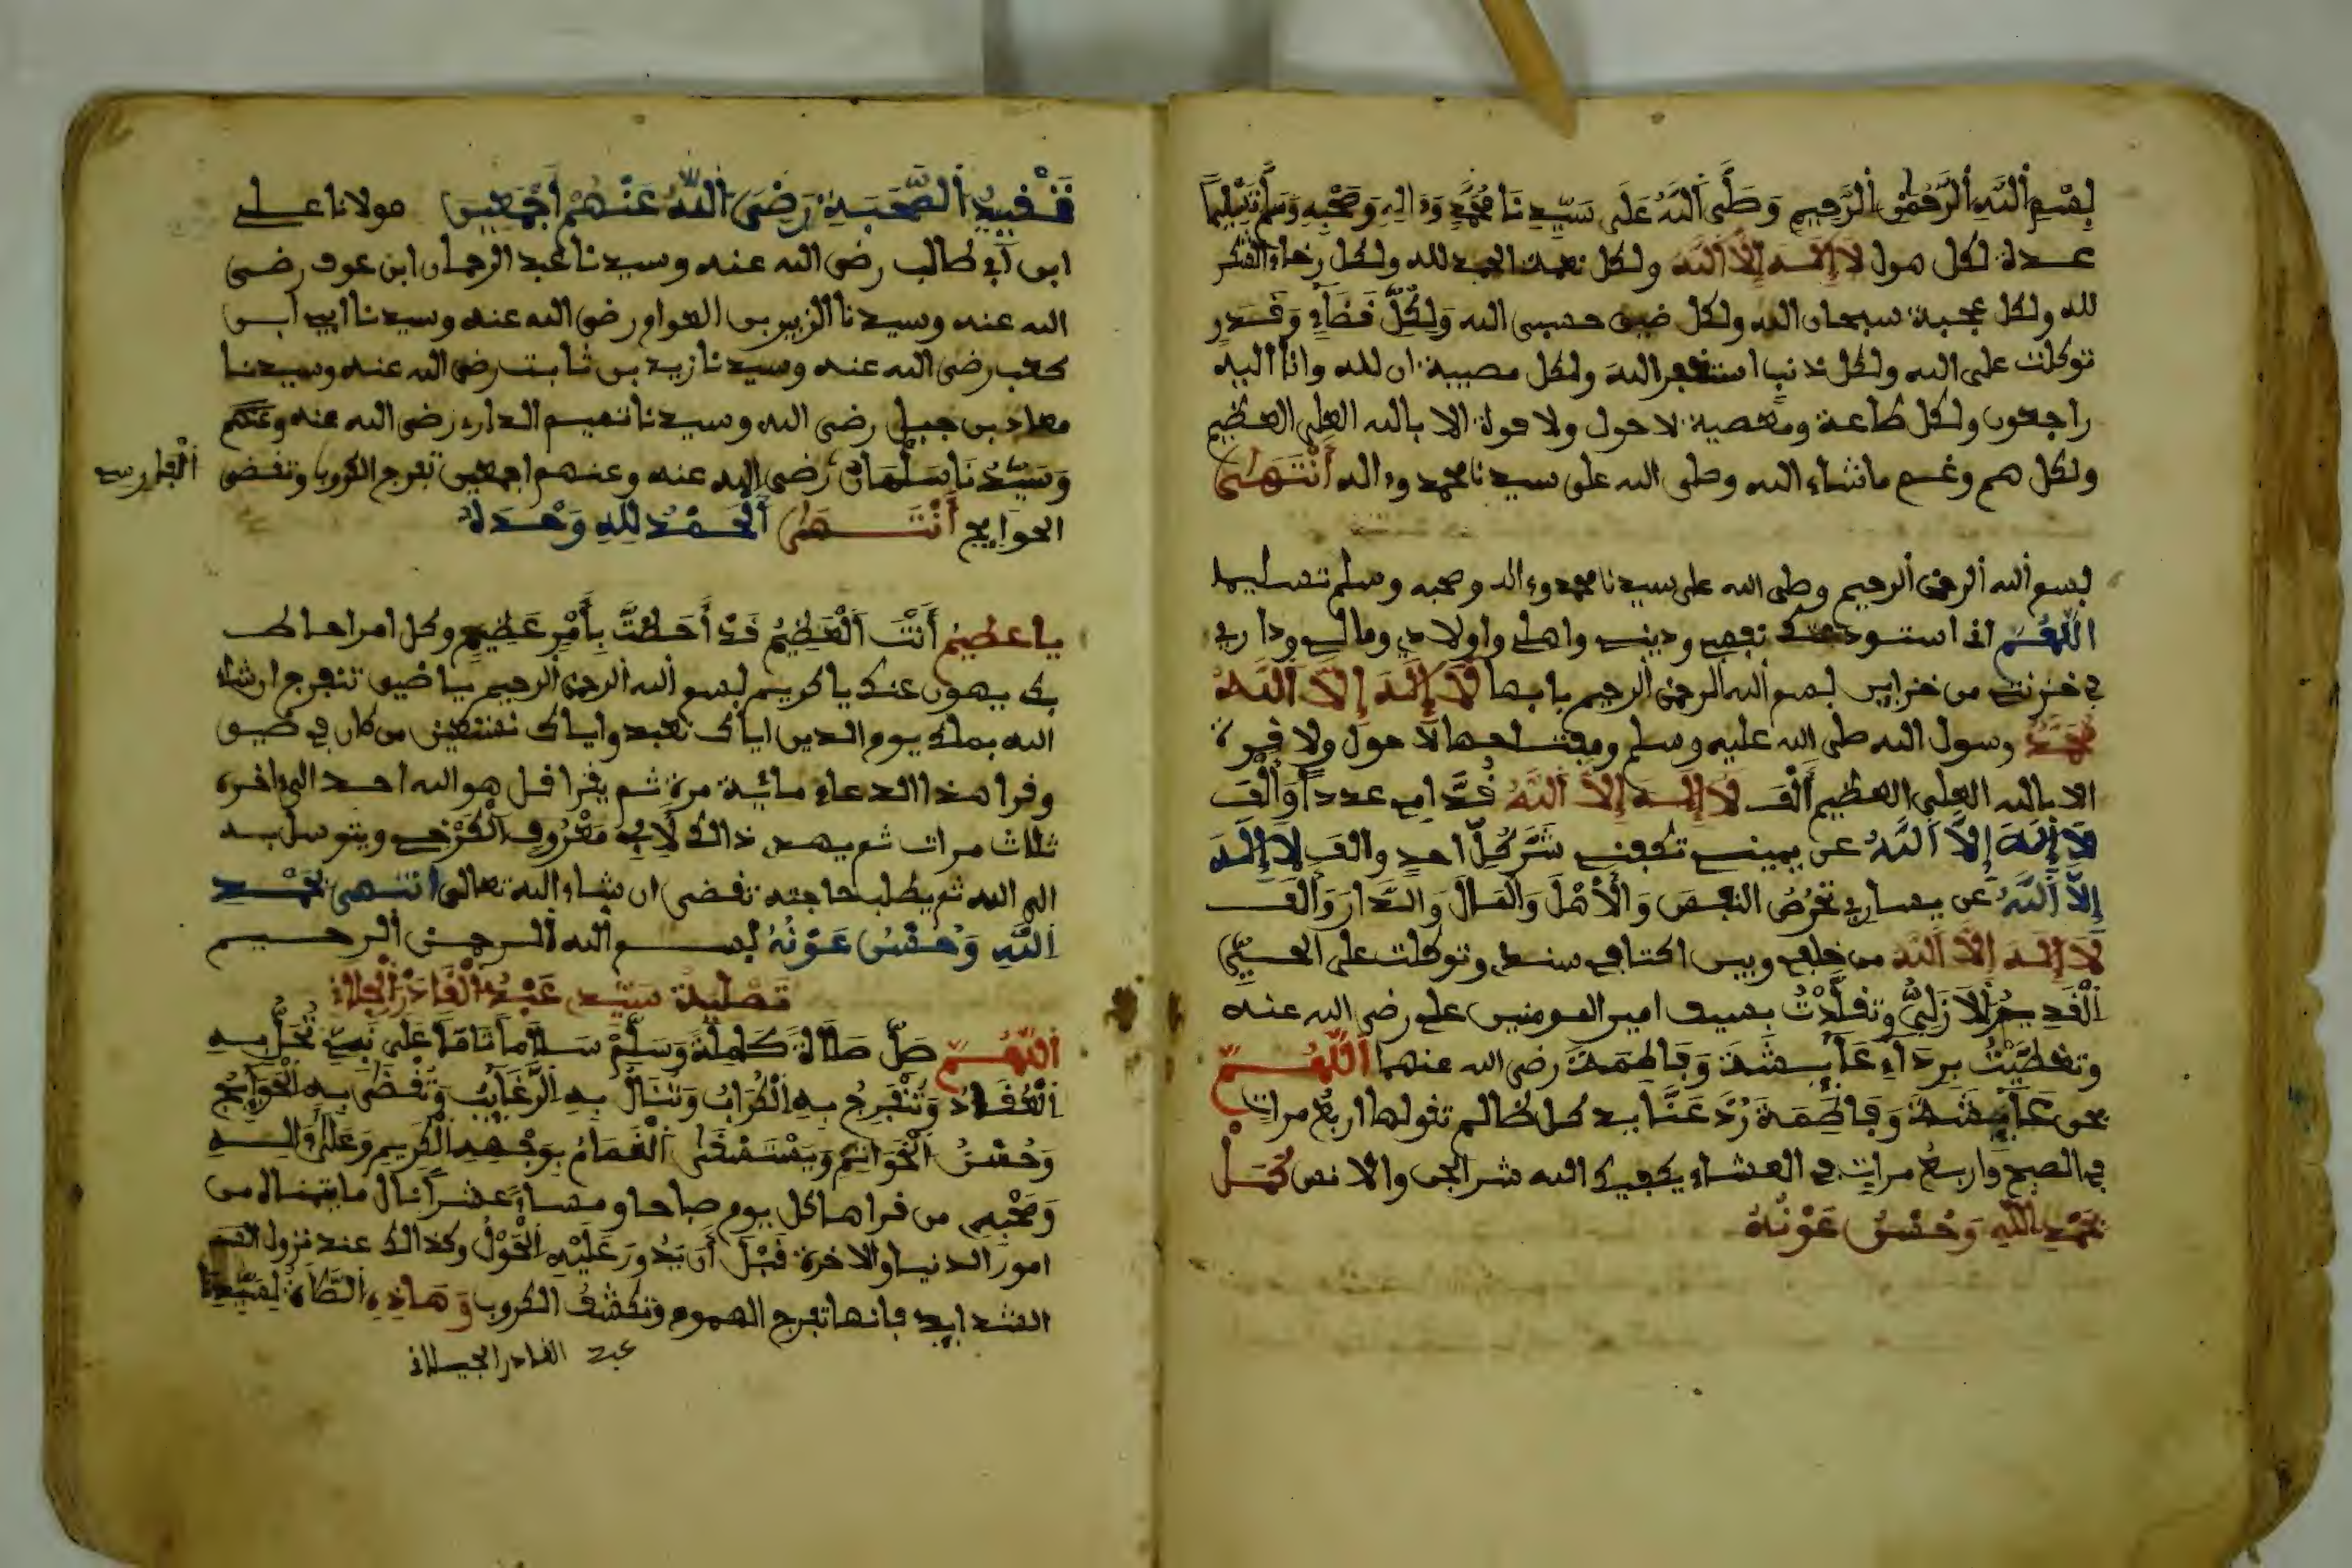 بِسْمِ اللَّهِ الرَّحْمٰنِ الرَّحِيمِ وَصَلَّى اللَّهُ عَلَى سَيِّدِنَا مُحَمَّدٍ وَءَالِهِ وَصَحْبِهِ وَسَلَّمَ تَسْلِيماً
عدة لكل هول لَا إِلَهَ إِلَّا اللَّهُ ولكل نعمة الحمد لله ولكل رخاء الشكر
لله ولكل عجبة سبحان الله ولكل ضيق حسبي الله وَلِكُلِّ قَضَاءٍ وَقَدَرٍ
توكلت على الله ولكل ذنب استغفر الله ولكل مصيبة ان لله وانا اليه
راجعون ولكل طاعة ومعصية لا حول ولا قوة الا بالله العلي العظيم
ولكل هم وغم ما شاء الله وصلى الله على سيدنا محمد وءاله انْتَهَى
بسم الله الرحمن الرحيم وصلى الله على سيدنا محمد وءاله وصحبه وسلم تسليما
اللَّهُمَّ اني استودعتك نفسي وديني واهلي واولادي ومالي وداري
في خزنت من خزاين بسم الله الرحمن الرحيم بابها لَا إِلَهَ إِلَّا اللَّهُ
مُحَمَّدٌ رسول الله صلى الله عليه وسلم ومفتاحها لا حول ولا قوة
الا بالله العلي العظيم أَلْفَ لَا إِلَهَ إِلَّا اللَّهُ قُدَّامِي عدداً وَأَلْفَ
لَا إِلَهَ إِلَّا اللَّهُ عن يميني تكفني شَرَّ كُلِّ احد والف لا إِلَهَ
إِلَّا اللَّهُ عن يساري تحرص النفس وَالْأَهْلَ وَالْمَالَ وَالدَّارَ وَأَلْف
لَا إِلَهَ إِلَّا اللَّه من خلفي وبين اكتافي سندي وتوكلت على الحي
الْقَدِيمِ الْأَزَلِيِّ وَتَقَلَّدْتُ بسيف امير المومنين علي رضي الله عنه
وتغطيتُ بِرِدَاءِ عَائِشَةَ وَفَاطِمَةَ رضي الله عنهما اللَّهُمَّ
بحق عَائِشَةَ وَفَاطِمَةَ رُدَّ عَنَّا يد كل ظالم تقولها اربع مرات
في الصبح واربع مرات في العشاء يكفيك الله شر الجن والانس كَمُلَ
بحَمْدِ اللَّهِ وَحُسْنِ عَوْنِهُ
تَقْيِيدُ الصَّحَبَةِ رَضِيَ اللَّهُ عَنْهُمْ أَجْمَعِينَ مولانا علي
ابن أبي طالب رضي الله عنه وسيدنا عبد الرحمان ابن عوف رضي
الله عنه وسيدنا الزبير بن العوام رضي الله عنه وسيدنا ابي ابن
كعب رضي الله عنه وسيدنا زيد بن ثابت رضي الله عنه وسيدنا
معاد بن جبل رضي الله وسيدنا تميم الداري رضي الله عنه وعنكم
وَسَيِّدُنَا سَلْمَانُ رضي الله عنه وعنهم اجمعين تفرج الكروب وتقضى
الْفَارِسِي
الحوايج انْتَهَى الْحَمْدُ لِلَّهِ وَحْدَهُ
يا عظيمُ أَنْتَ الْعَظِيمُ قَدْ أَحَطْتَ بِأَمْرٍ عَظِيمٍ وكل امر احاط
بي يهون عنك يا كريم بسم الله الرحمن الرحيم يا ضيق تنفرج ان شاء
الله بملك يوم الدين اياك نعبد واياك نستعين من كان في ضيق
وقرا هذا الدعاء مائية مرة ثم يقرا قل هو الله احد الى اخره
ثلاث مرات ثم يهدي ذالك لِأَبِي مَعْرُوفِ الْكَرْخِي ويتوسل به
الى الله ثم يطلب حاجته تقضى ان شاء الله تعالى انتهى بحَمْدِ
اللَّهِ وَحُسْنِ عَوْنِهُ بسم الله الرحمن الرحيم
تَصْلِيَة سَيِّدِي عَبْدُ الْقَادِرْ الْجِلَانِي
اللَّهُمَّ صَلِّ صَلَاةً كَامِلَةً وَسَلِّمْ سَلَاماً تَامّاً عَلَى نَبِيٍّ تَحَلُّ بِهِ
الْعُقَدُ وَتَنْفَرِجُ بِهِ الْكُرَبُ وَتَنَالُ بِهِ الرَّغَايِبُ وَتُقْضَى بِهِ الْحَوَايِجُ
وَحُسْنُ الْخَوَاتِمِ وَيُسْتَسْقَى الْغَمَامُ بِوَجْهِهِ الْكَرِيمِ وَعَلَى ءَالِهِ
وَصَحْبِهِ من قراها كل يوم صباحا ومساءً عشراً نال ما يتمناه من
امور الدنيا والاخرة قَبْلَ أَن يَدُورَ عَلَيْهِ الْحَوْلُ وكذالك عند نزول
الشدايد فانها تفرج الهموم وتكشف الكروب وَهَاذِهِ الصَّلَاة لِسَيِّدِنَا
عبد القادر الجيلاني